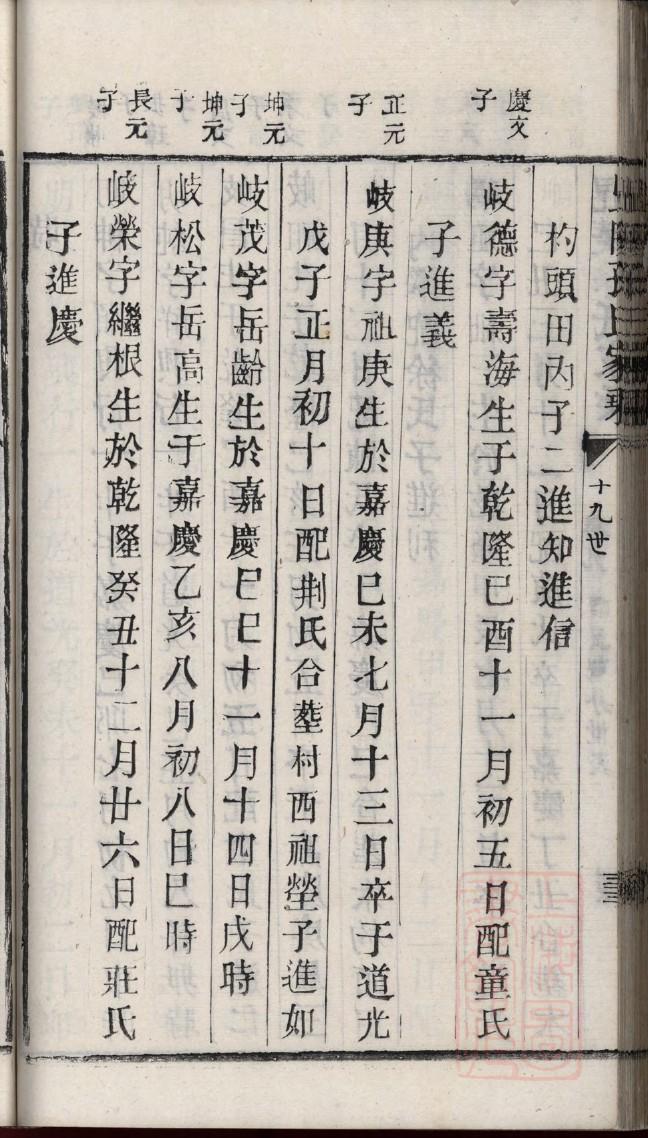 孫氏家乘
十九世
杓頭田內子二進知進信
慶文子
岐德字壽海生于乾隆己酉十一月初五日配童氏
子進義
正元子
岐庚字祖庚生於嘉慶己未七月十三日卒于道光
戊子正月初十日配荆氏合塟村西祖塋子進如
坤元子
岐茂字岳齡生於嘉慶己巳十一月十四日戌時
坤元子
岐松字岳高生于嘉慶乙亥八月初八日巳時
長元子
岐榮字繼根生於乾隆癸丑十二月廿六日配莊氏
子進慶